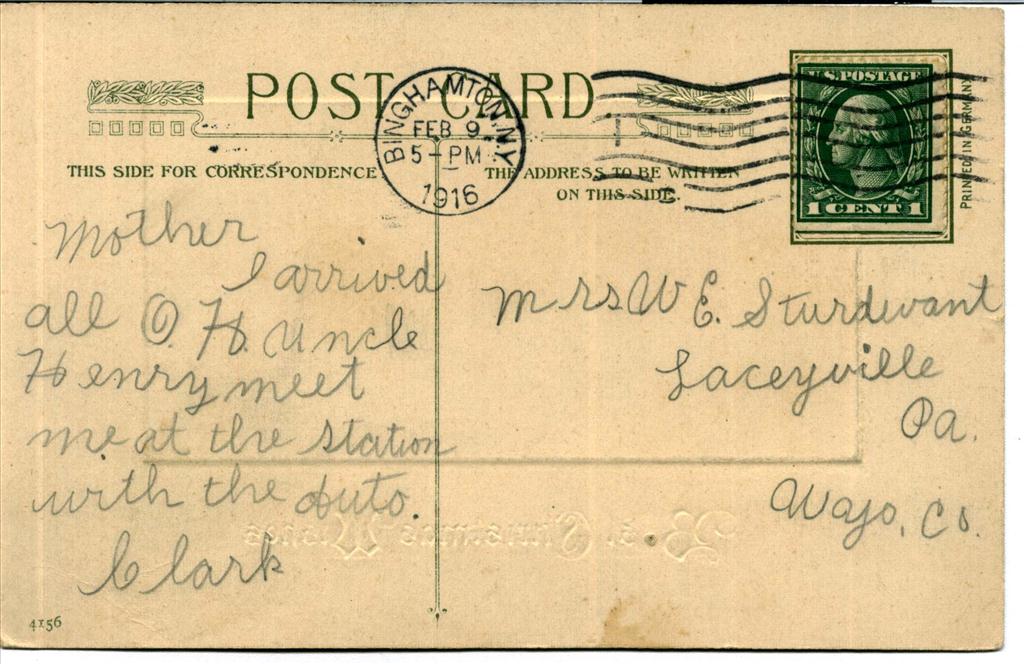 POST CARD
BINGHAMTON, N.Y.
FEB 9
5-PM
1916
U.S. POSTAGE
1 CENT 1
PRINTED IN GERMANY
THIS SIDE FOR CORRESPONDENCE
THE ADDRESS TO BE WRITTEN
ON THIS SIDE.
Mother
I arrived
all O. H. Uncle
Henry meet
me at the station
with the auto.
Clark
Mrs W E. Sturdevant
Laceyville
Pa.
Wayo, Co.
Best Christmas Wishes
4156